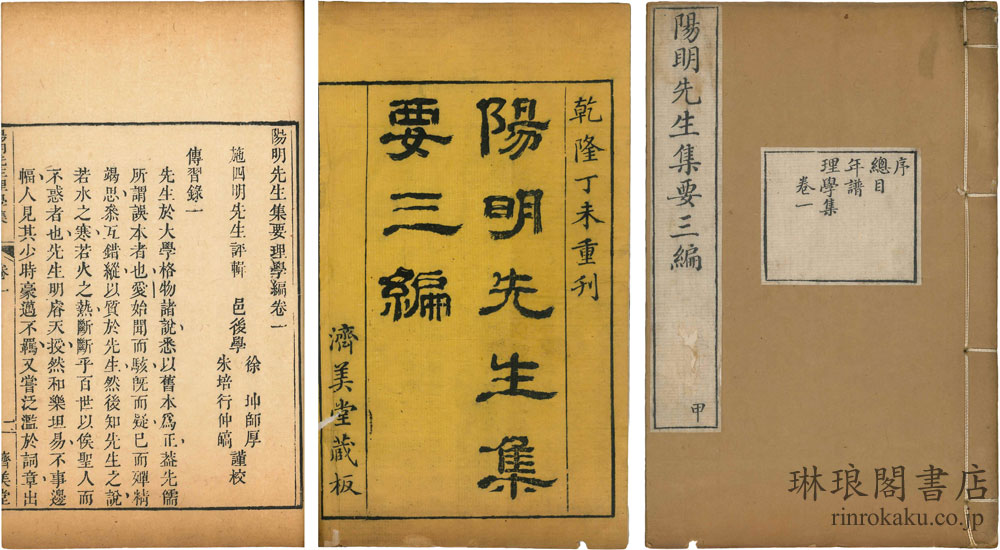 陽明先生集要三編
甲
序
總目
年譜
理學集
卷一
乾隆丁未重刊
陽明先生集
要三編
濟美堂藏板
陽明先生集要理學編卷一
施四明先生評輯 邑後學 徐 坤師厚
朱培行仲皜 謹校
傳習錄一
先生於大學格物諸說悉以舊本爲正葢先儒
所謂誤本者也愛始聞而駭旣而疑已而殫精
竭思叅互錯縱以質於先生然後知先生之說
若水之寒若火之熱斷斷乎百世以俟聖人而
不惑者也先生明睿天授然和樂坦易不事邊
幅人見其少時豪邁不羈又嘗泛濫於詞章出
濟美堂
琳琅閣書店
rinrokaku.co.jp